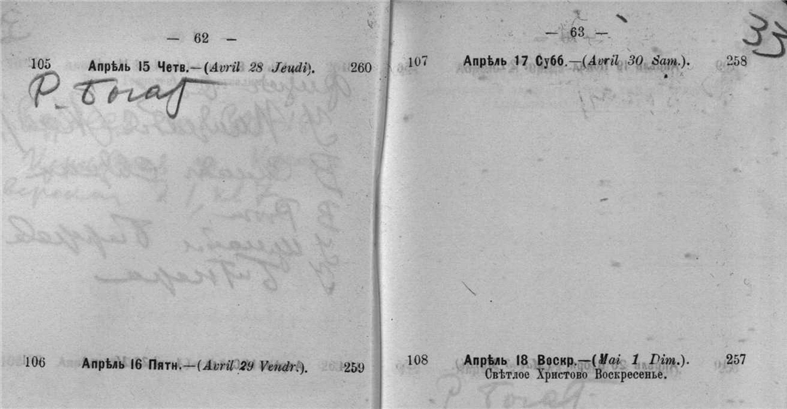 — 62 —
105 Апрѣль 15 Четв.—(Avril 28 Jeudi). 260
Р. Богат
106 Апрѣль 16 Пятн.—(Avril 29 Vendr.). 259
— 63 —
33
107 Апрѣль 17 Субб.—(Avril 30 Sam.). 258
108 Апрѣль 18 Воскр.—(Mai 1 Dim.). 257
Свѣтлое Христово Воскресенье.